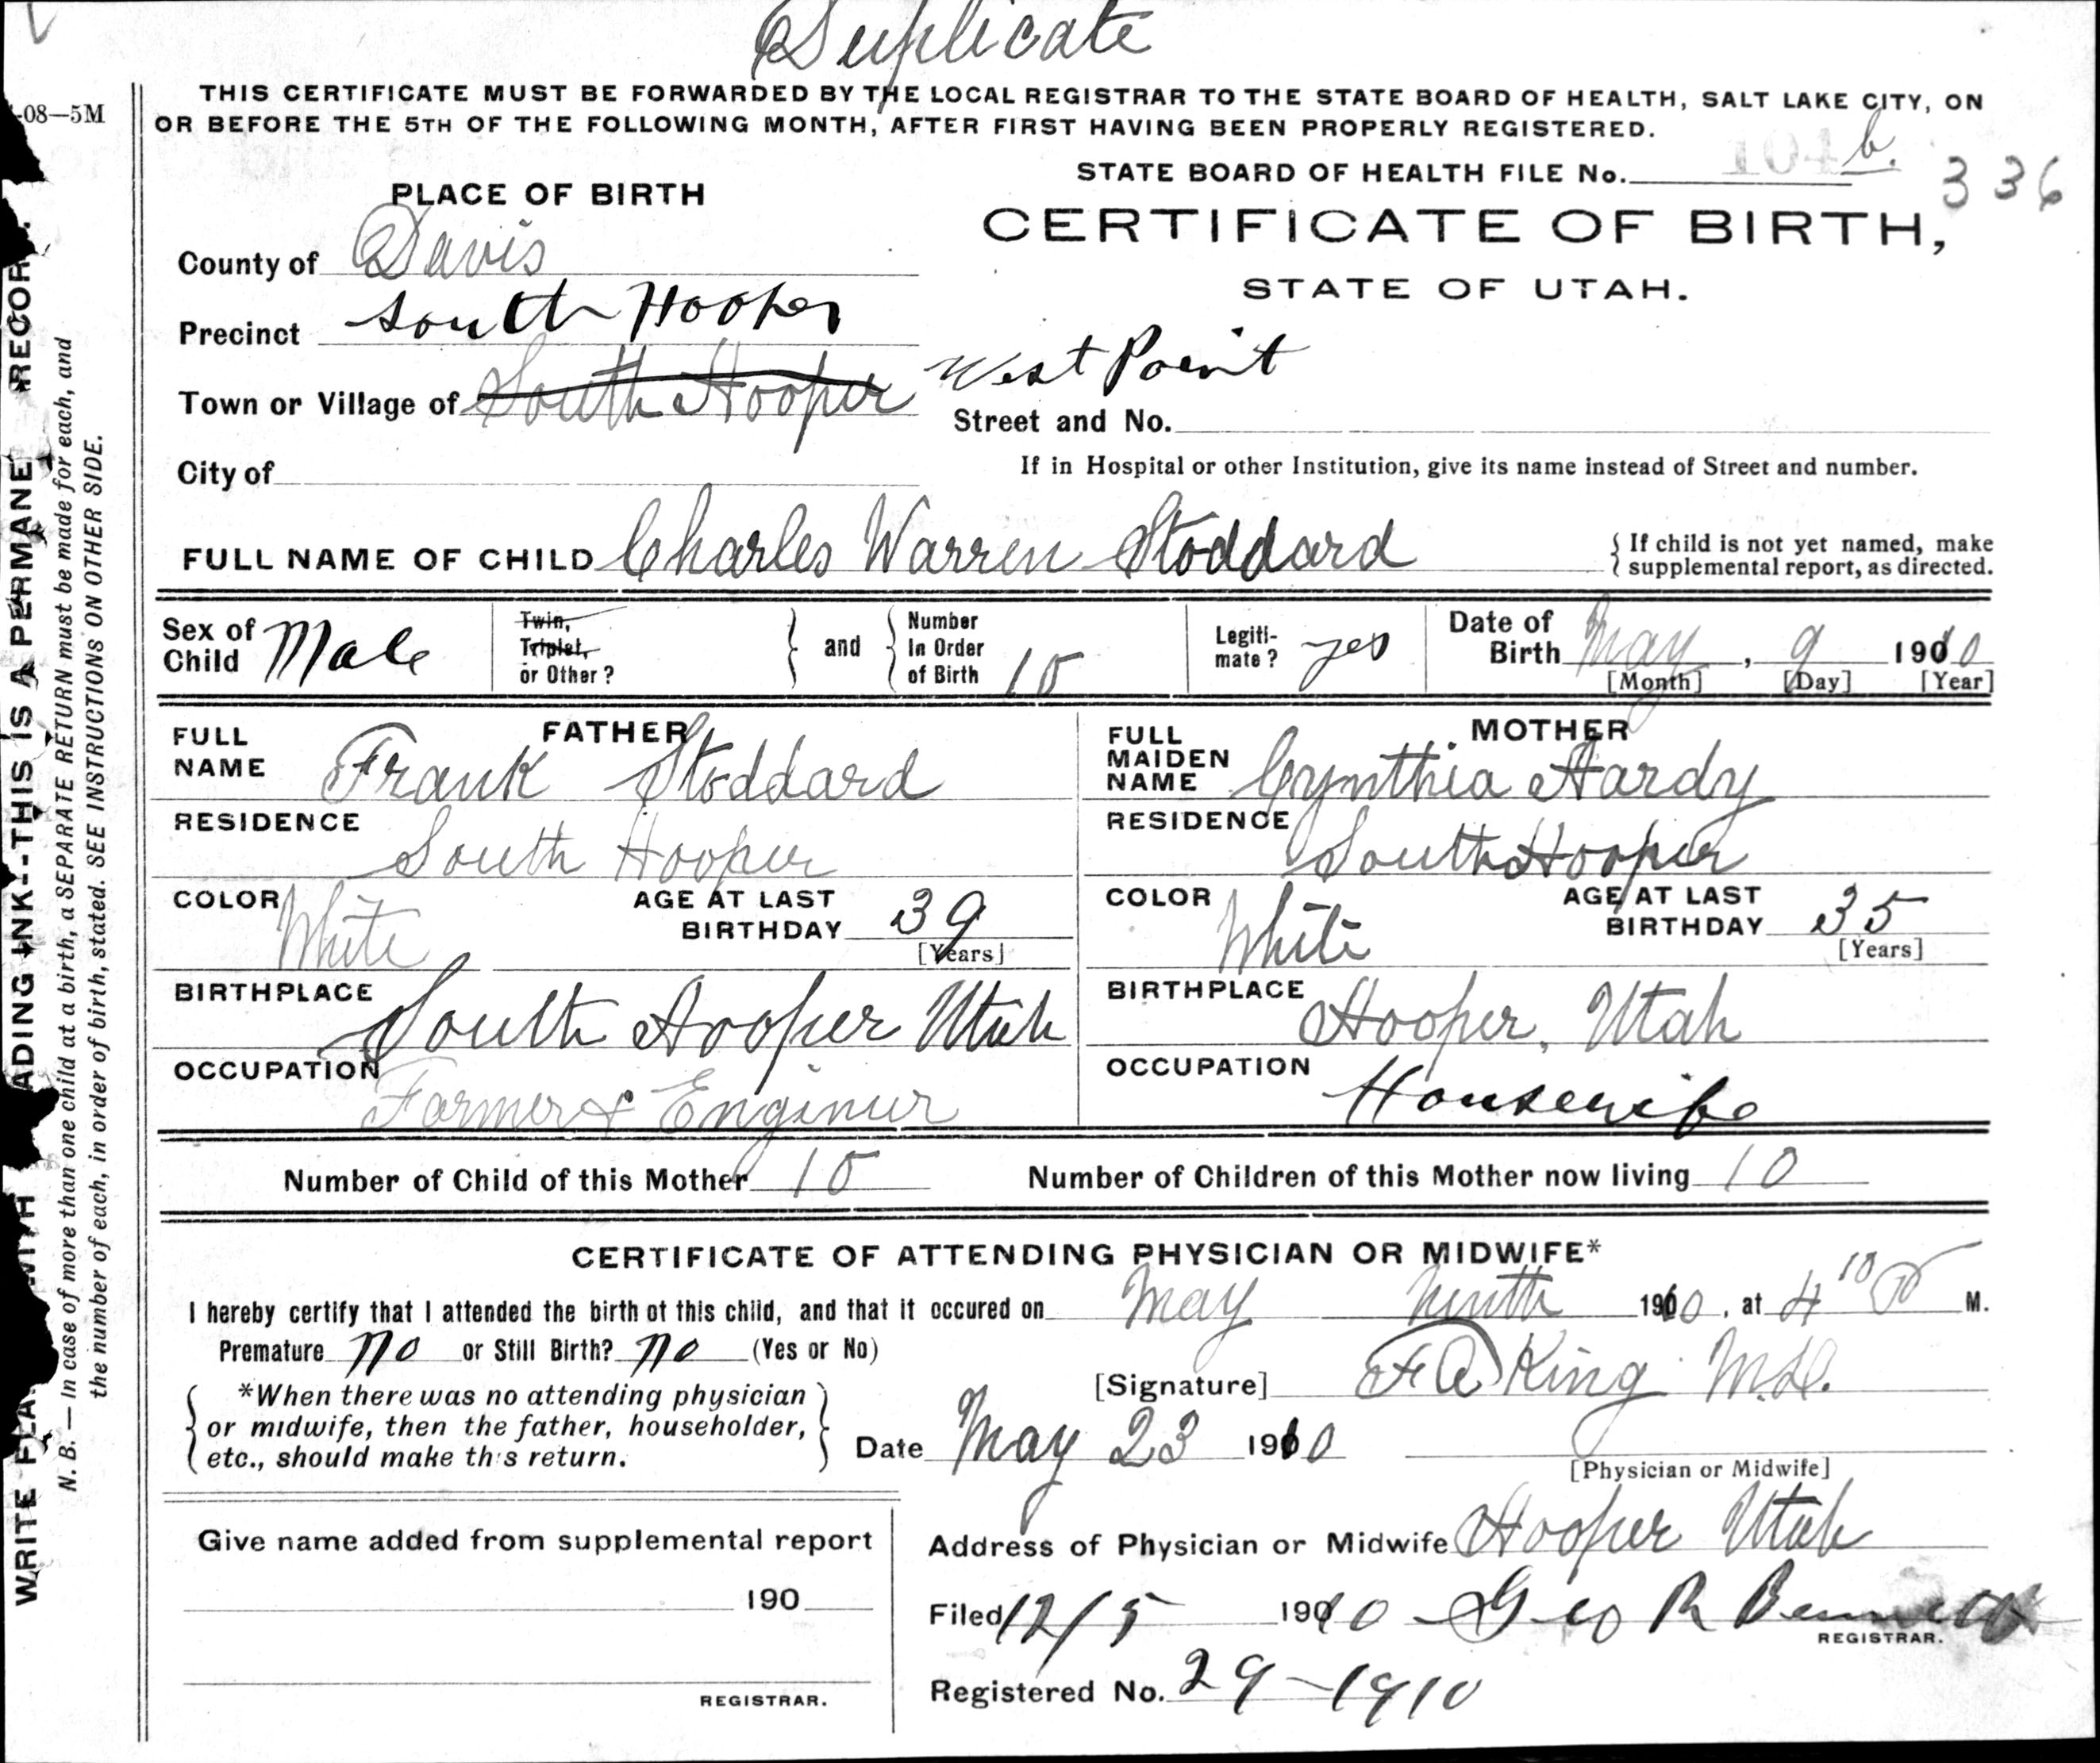 Duplicate
THIS CERTIFICATE MUST BE FORWARDED BY THE LOCAL REGISTRAR TO THE STATE BOARD OF HEALTH, SALT LAKE CITY, ON
OR BEFORE THE 5TH OF THE FOLLOWING MONTH, AFTER FIRST HAVING BEEN PROPERLY REGISTERED.
-08—5M
STATE BOARD OF HEALTH FILE No. 104 b. 336
PLACE OF BIRTH
CERTIFICATE OF BIRTH,
STATE OF UTAH.
County of Davis
Precinct South Hooper
Town or Village of South Hooper West Point
Street and No.
City of
If in Hospital or other Institution, give its name instead of Street and number.
FULL NAME OF CHILD Charles Warren Stoddard
{ If child is not yet named, make
supplemental report, as directed.
Sex of Child Male
Twin, Triplet, or Other?
} and {
Number In Order of Birth 10
Legiti-mate? yes
Date of Birth May, 9 1910
[Month] [Day] [Year]
FATHER
FULL NAME Frank Stoddard
RESIDENCE
South Hooper
COLOR White
AGE AT LAST BIRTHDAY 39
[Years]
BIRTHPLACE
South Hooper Utah
OCCUPATION
Farmer & Enginier
MOTHER
FULL MAIDEN NAME Cynthia Hardy
RESIDENCE
South Hooper
COLOR White
AGE AT LAST BIRTHDAY 35
[Years]
BIRTHPLACE
Hooper, Utah
OCCUPATION
Housewife
Number of Child of this Mother 10 Number of Children of this Mother now living 10
CERTIFICATE OF ATTENDING PHYSICIAN OR MIDWIFE*
I hereby certify that I attended the birth of this child, and that it occured on May ninth 1910, at 4 10 M.
Premature no or Still Birth? no (Yes or No)
[Signature] F A King M.D.
{ *When there was no attending physician
or midwife, then the father, householder,
etc., should make this return. }
Date May 23 1910
[Physician or Midwife]
Give name added from supplemental report
190
REGISTRAR.
Address of Physician or Midwife Hooper Utah
Filed 12/5 1910 Geo R Bennett
REGISTRAR.
Registered No. 29-1910
WRITE PLA WITH ADING INK--THIS IS A PERMANE RECOR
N. B. — In case of more than one child at a birth, a SEPARATE RETURN must be made for each, and
the number of each, in order of birth, stated. SEE INSTRUCTIONS ON OTHER SIDE.